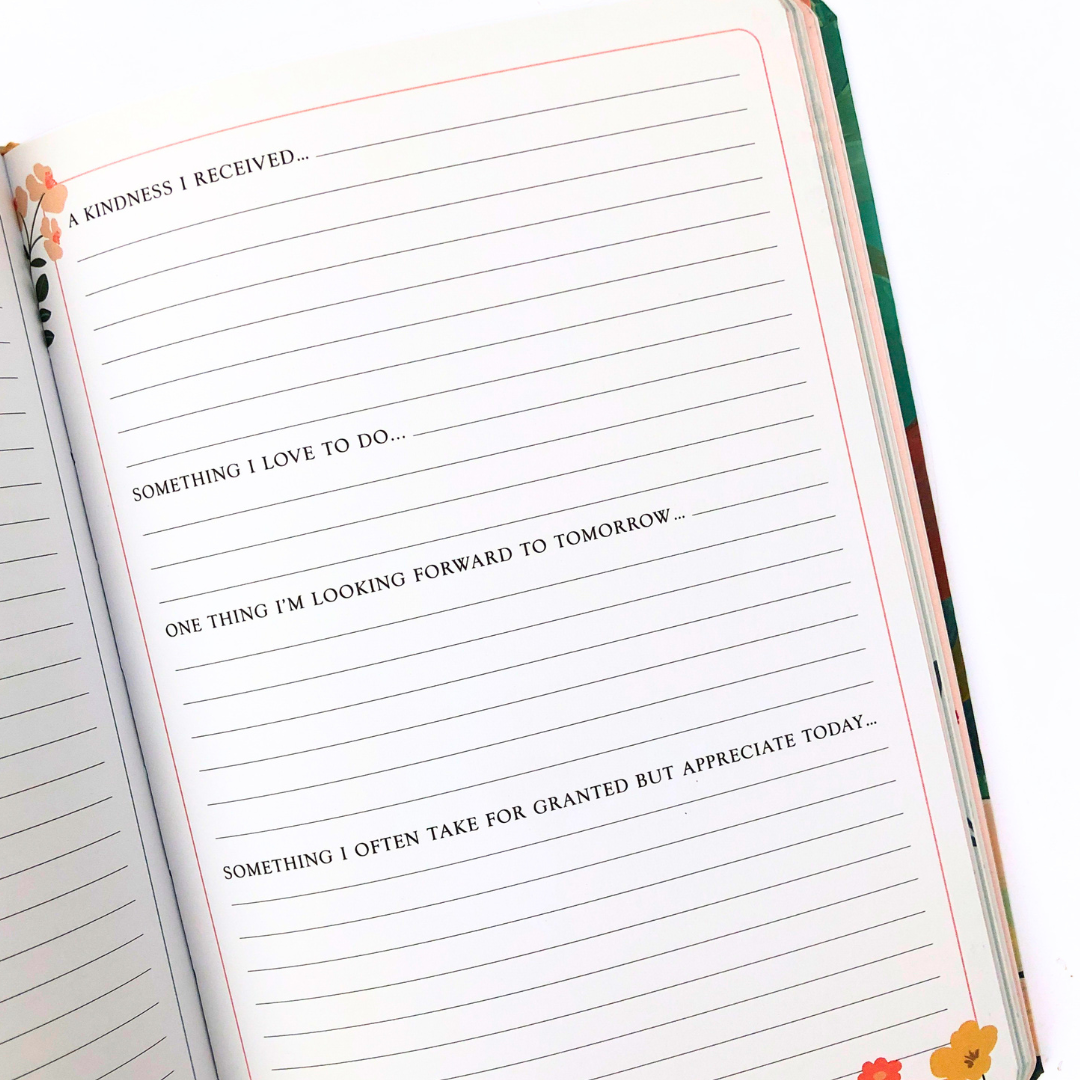 A KINDNESS I RECEIVED...
SOMETHING I LOVE TO DO...
ONE THING I'M LOOKING FORWARD TO TOMORROW...
SOMETHING I OFTEN TAKE FOR GRANTED BUT APPRECIATE TODAY...